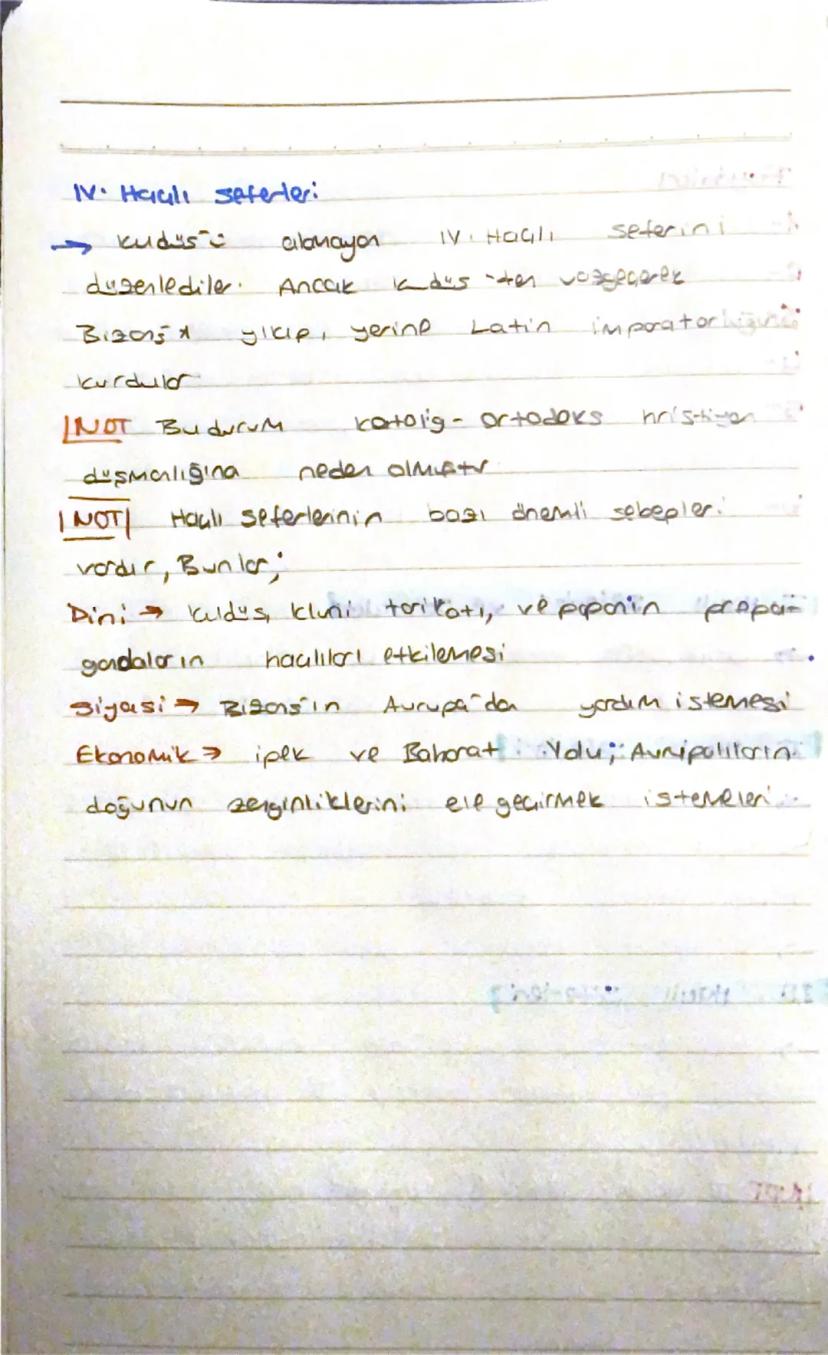 IV. Haçlı seferleri
→ Kudüs'ü almayan IV. Haçlı seferini
düzenlediler. Ancak Kudüs'ten vazgeçerek
Bizans'ı yıkıp, yerine Latin imparatorluğu
kurdular
NOT Bu durum katolig - ortodoks hristiyan
düşmanlığına neden olmuştur
NOT Haçlı seferlerinin bazı önemli sebepleri
vardır, Bunlar;
Dini → Kudüs, kluni tarikatı, ve papanin propa-
gandaların haçlıları etkilemesi
Siyasi → Bizans'ın Avrupa'dan yardım istemesi
Ekonomik → ipek ve Baharat Yolu; Avrupalıların
doğunun zenginliklerini ele geçirmek istemeleri.